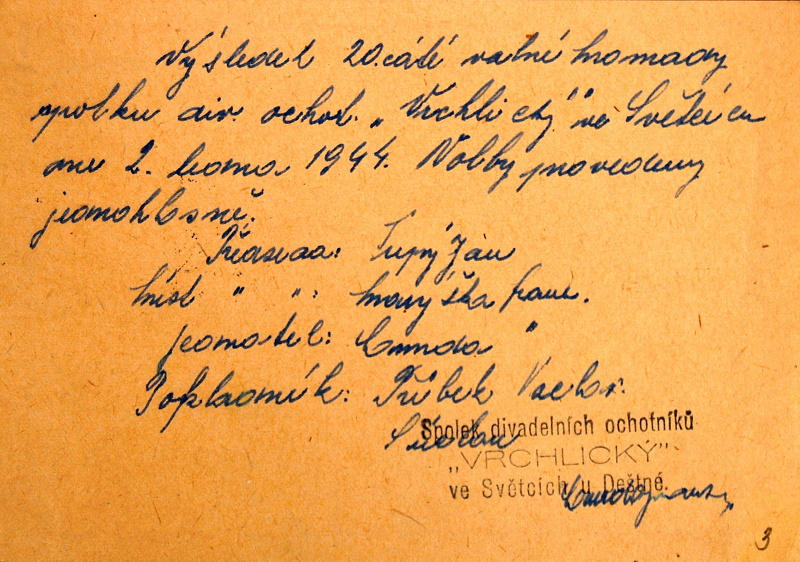 Výsledek 20.cáté valné hromady
spolku div. ochot. „Vrchlický" ve Světcích
dne 2. ledna 1944. Volby provedeny
jednohlasně.
Předseda: Tupý Jan
míst " " :
jednatel: "
Pokladník: Přibek Václav.
Spolek divadelních ochotníků
„VRCHLICKÝ"
ve Světcích u Deštné.
3